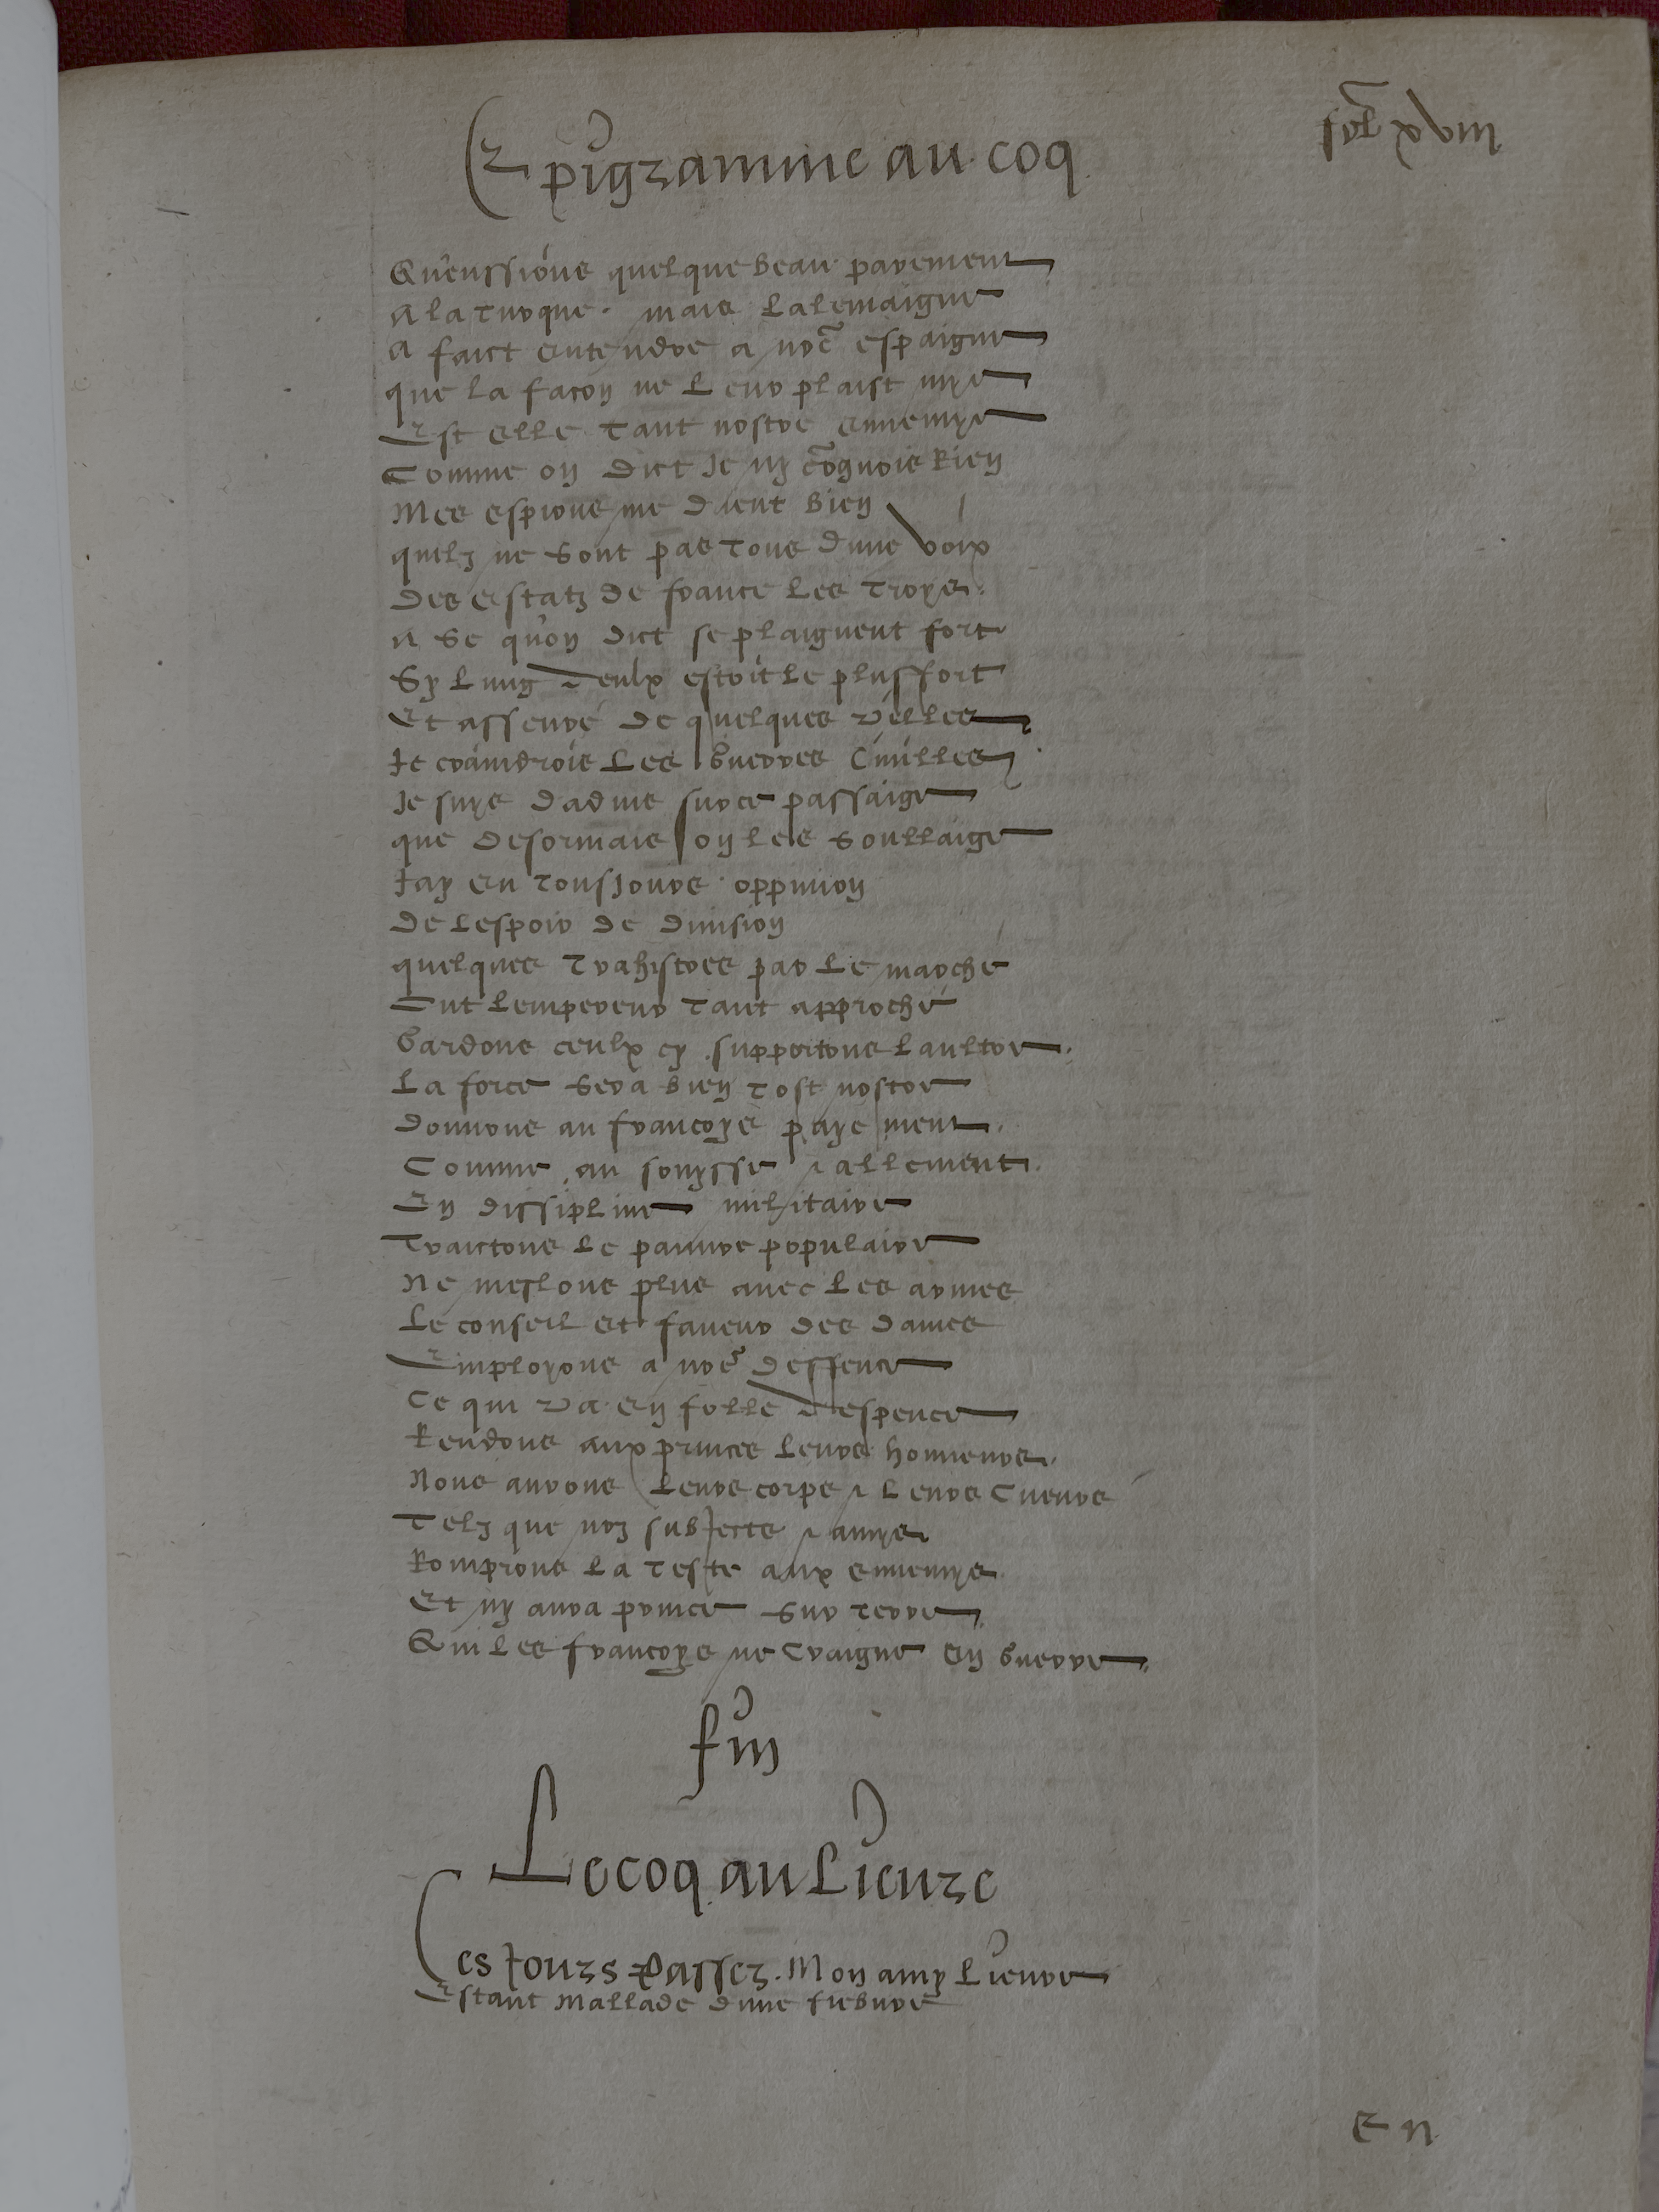 fol xviii
Epigramme au coq
Queussions quelque beau pavement
A la turque. mais Lalemaigne
A faict entendre a nr̃e espaigne
que la facon ne Leur plaist mye
Est elle tant nostre ennemye
Comme on dict Je ny cõgnois Rien
Mes espions me dient bien
quilz ne sont pas tous dune voix
Des estatz de france Les troys
A se quon dict se plaignent fort
Sy Lung deulx estoit Le plus fort
Et asseuré de quelques villes
Je craindrois Les Guerres Ciuilles
Je suys daduis sur ce passaige
que desormais on les soullaige
Jay eu tousjours oppinion
De Lespoir de diuision
quelques trahistres par Le marché
Ont Lempereur tant approché
Gardons ceulx cy supportons Laultre
La force sera bien tost nostre
Donnons au francoys payement
Comme au souysse & allement
En dissipline militaire
Traictons Le pauure populaire
Ne meslons plus auec Les armes
Le conseil et faueur des dames
Employons a nr̃e deffence
Ce qui va en folle despence
Rendons aux princes Leurs honneurs
Nous aurons Leurs corps & Leurs Cueurs
Telz que noz subjectz & amys
Romprons La teste aux ennemys
Et ny aura prince sur terre
Qui Les francoys ne Craigne en Guerre
fin
Le coq au Lieure
Ces Jours Passez. Mon amy Lieure
Estant Mallade dune fiebure
En